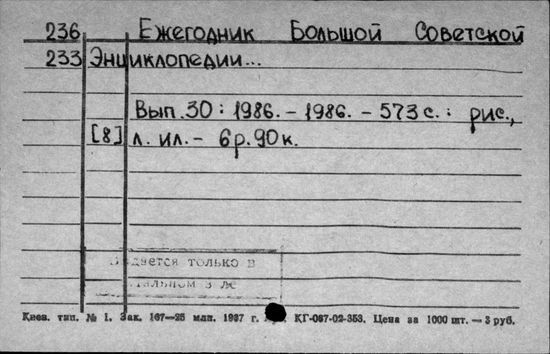 236 Ежегодник Большой Советской
233 Энциклопедии...
Вып. 30 : 1986. – 1986. – 573 с. : рис.,
[8] л. ил. – 6 р. 90 к.
только в
Киев. тип. № 1. Зак. 167—25 млн. 1987 г. КГ-087-02-353. Цена за 1000 шт. — 3 руб.